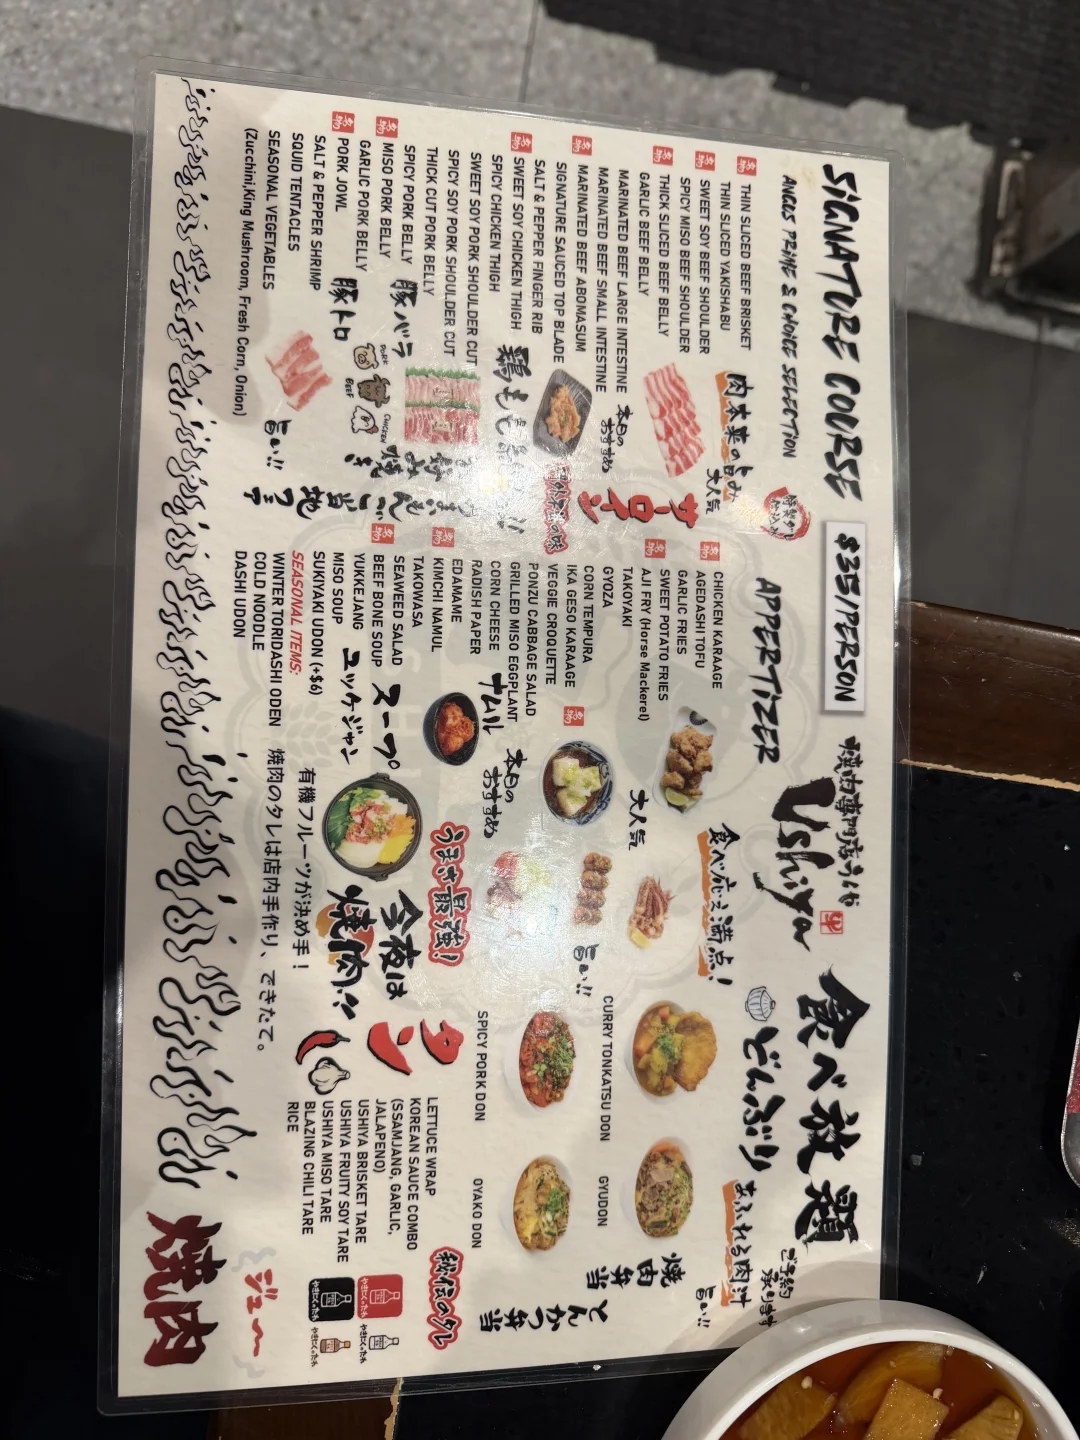 SIGNATURE COURSE
$35/PERSON
ANGUS PRIME & CHOICE SELECTION
焼肉専門店うしや
Ushiya
食べ放題
名物 THIN SLICED BEEF BRISKET
THIN SLICED YAKISHABU
名物 SWEET SOY BEEF SHOULDER
SPICY MISO BEEF SHOULDER
名物 THICK SLICED BEEF BELLY
GARLIC BEEF BELLY
MARINATED BEEF LARGE INTESTINE
MARINATED BEEF SMALL INTESTINE
名物 MARINATED BEEF ABOMASUM
SIGNATURE SAUCED TOP BLADE
SALT & PEPPER FINGER RIB
名物 SWEET SOY CHICKEN THIGH
SPICY CHICKEN THIGH
SWEET SOY PORK SHOULDER CUT
SPICY SOY PORK SHOULDER CUT
THICK CUT PORK BELLY
SPICY PORK BELLY
名物 MISO PORK BELLY
GARLIC PORK BELLY
名物 PORK JOWL
SALT & PEPPER SHRIMP
SQUID TENTACLES
SEASONAL VEGETABLES
(Zucchini,King Mushroom, Fresh Corn, Onion)
肉本来の旨み
大人気
本日の
おすすめ
サーロイン
鶏もも
豚バラ
豚トロ
PORK
BEEF
CHICKEN
旨い!!
APPERTIZER
名物 CHICKEN KARAAGE
AGEDASHI TOFU
GARLIC FRIES
SWEET POTATO FRIES
名物 AJI FRY (Horse Mackerel)
TAKOYAKI
GYOZA
CORN TEMPURA
IKA GESO KARAAGE
VEGGIE CROQUETTE
PONZU CABBAGE SALAD
GRILLED MISO EGGPLANT
CORN CHEESE
RADISH PAPER
EDAMAME
名物 KIMCHI NAMUL
TAKOWASA
SEAWEED SALAD
名物 BEEF BONE SOUP
YUKKEJANG
MISO SOUP
SUKIYAKI UDON (+$6)
SEASONAL ITEMS:
WINTER TORIDASHI ODEN
COLD NOODLE
DASHI UDON
食べ応え満点!
大人気
名物
本日の
おすすめ
ナムル
スープ
ユッケジャン
旨い!!
うまさ最強!
今夜は
焼肉!!
有機フルーツが決め手!
焼肉のタレは店内手作り、できたて。
どんぶり
あふれる肉汁
旨い!!
ご予約
承ります
CURRY TONKATSU DON
GYUDON
SPICY PORK DON
OYAKO DON
焼肉弁当
とんかつ弁当
タン
秘伝のタレ
LETTUCE WRAP
KOREAN SAUCE COMBO
(SSAMJANG, GARLIC,
JALAPENO)
USHIYA BRISKET TARE
USHIYA FRUITY SOY TARE
USHIYA MISO TARE
BLAZING CHILI TARE
RICE
やきにくのたれ
やきにくのたれ
やきにくのたれ
やきにくのたれ
ジュ〜
焼肉